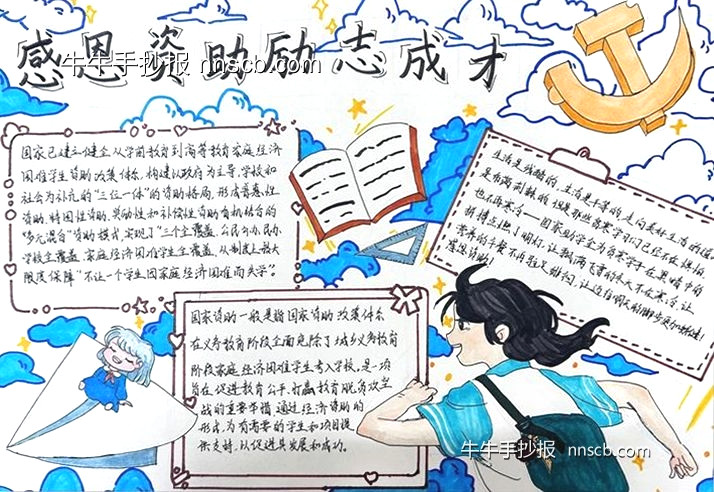 感恩资助励志成才
牛牛手抄报 nnscb.com
国家已建立健全从学前教育到高等教育家庭经济
困难学生资助政策体系,构建以政府为主导、学校和
社会为补充的“三位一体”的资助格局,形成普惠性
资助、特困性资助、奖励性和补偿性资助有机结合的
“多元混合”资助模式,实现了“三个全覆盖,公民办民办
学校全覆盖、家庭经济困难学生全覆盖,从制度上最大
限度保障“不让一个学生因家庭经济困难而失学”。
生活是残酷的,生活是不等的,走向美好生活的征
是布满荆棘的
也不再寒冷——国家助学金为
国家资助一般是指国家资助政策体系
在义务教育阶段全面免除了城乡义务教育
阶段家庭经济困难学生考入学校,是一项
在促进教育公平,打赢教育脱贫攻坚
战的重要举措,通过经济资助的
形式,为有需要的学生和项目提
供支持,以促进其发展和成功。
牛牛手抄报 nnscb.com